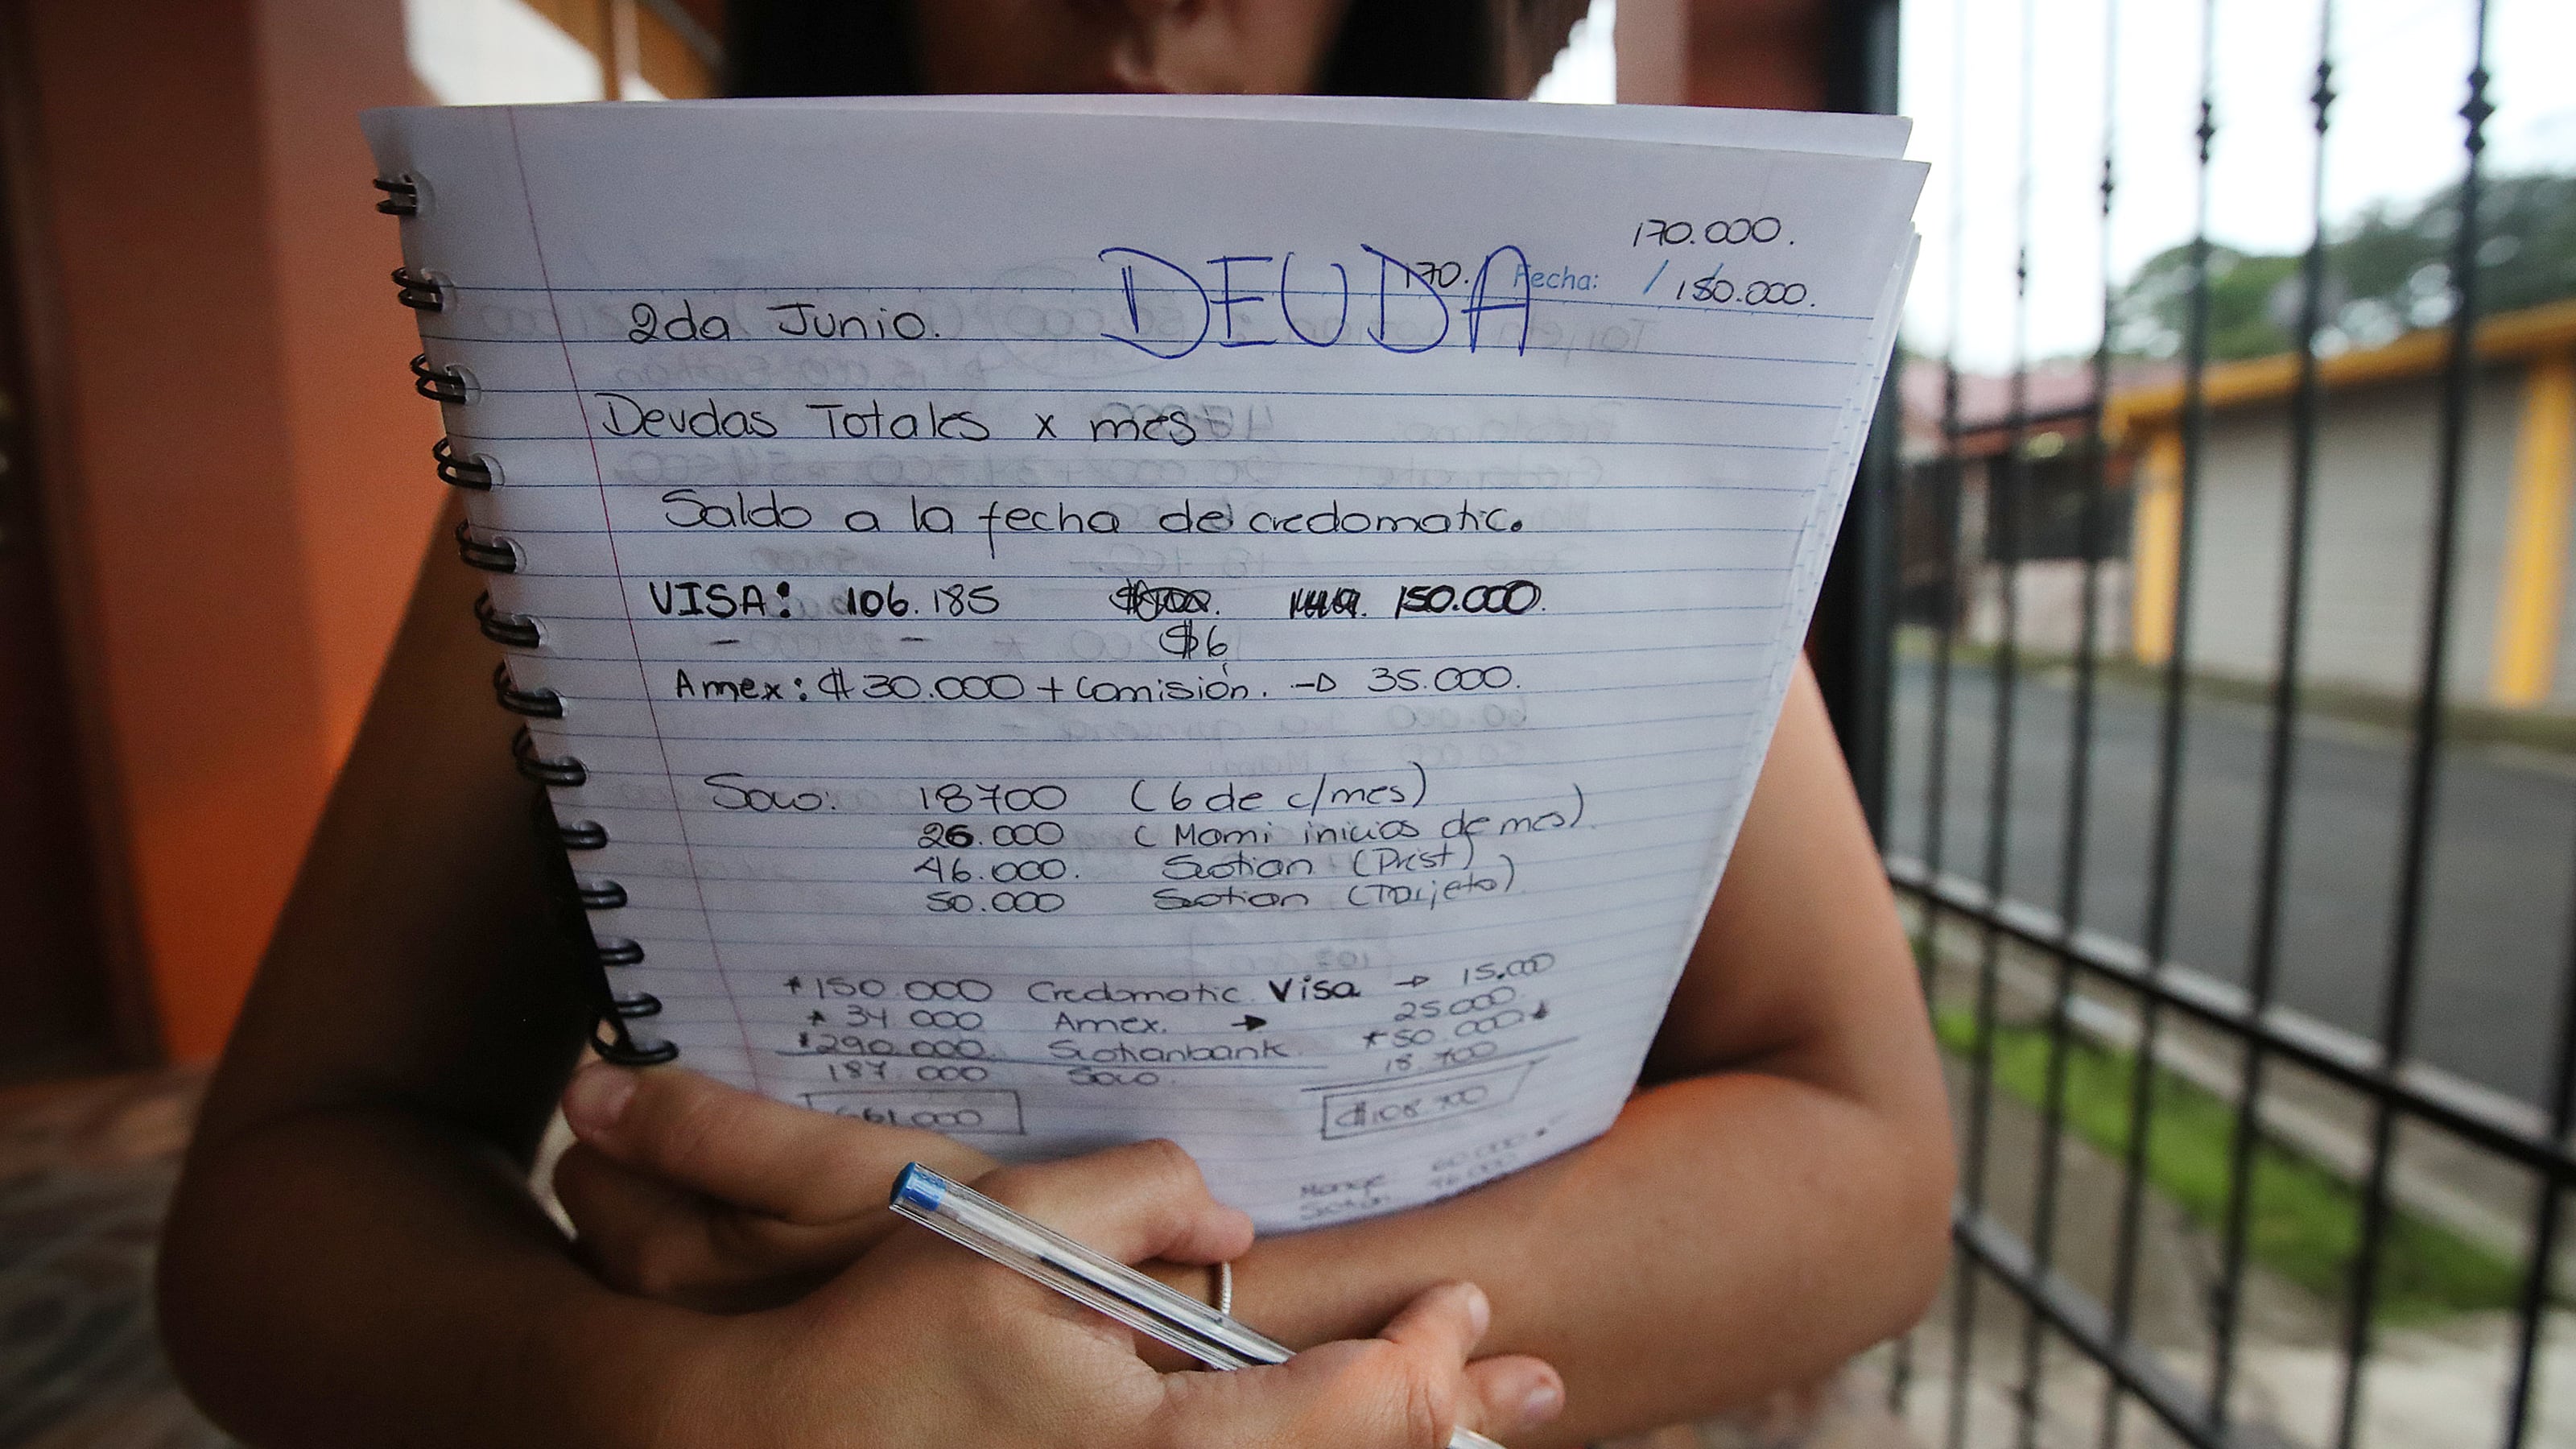 170.000.
DEUDA 170. Fecha: / 150.000.
2da Junio.
Deudas Totales x mes
Saldo a la fecha de credomatic.
VISA: 106.185 150.000.
- - $6
Amex: ₡ 30.000 + comisión. → 35.000.
Soco: 18700 (6 de c/mes)
26.000 (Mami inicios de mes)
46.000. Scotian (Prést)
50.000 Scotian (Tarjeta)
*150.000 Credomatic Visa → 15.000
* 34.000 Amex. → 25.000
*290.000. Scotianbank. *50.000*
187.000 Soco. 18.700
661.000 ₡108.700
Monge 60.000
Scotian